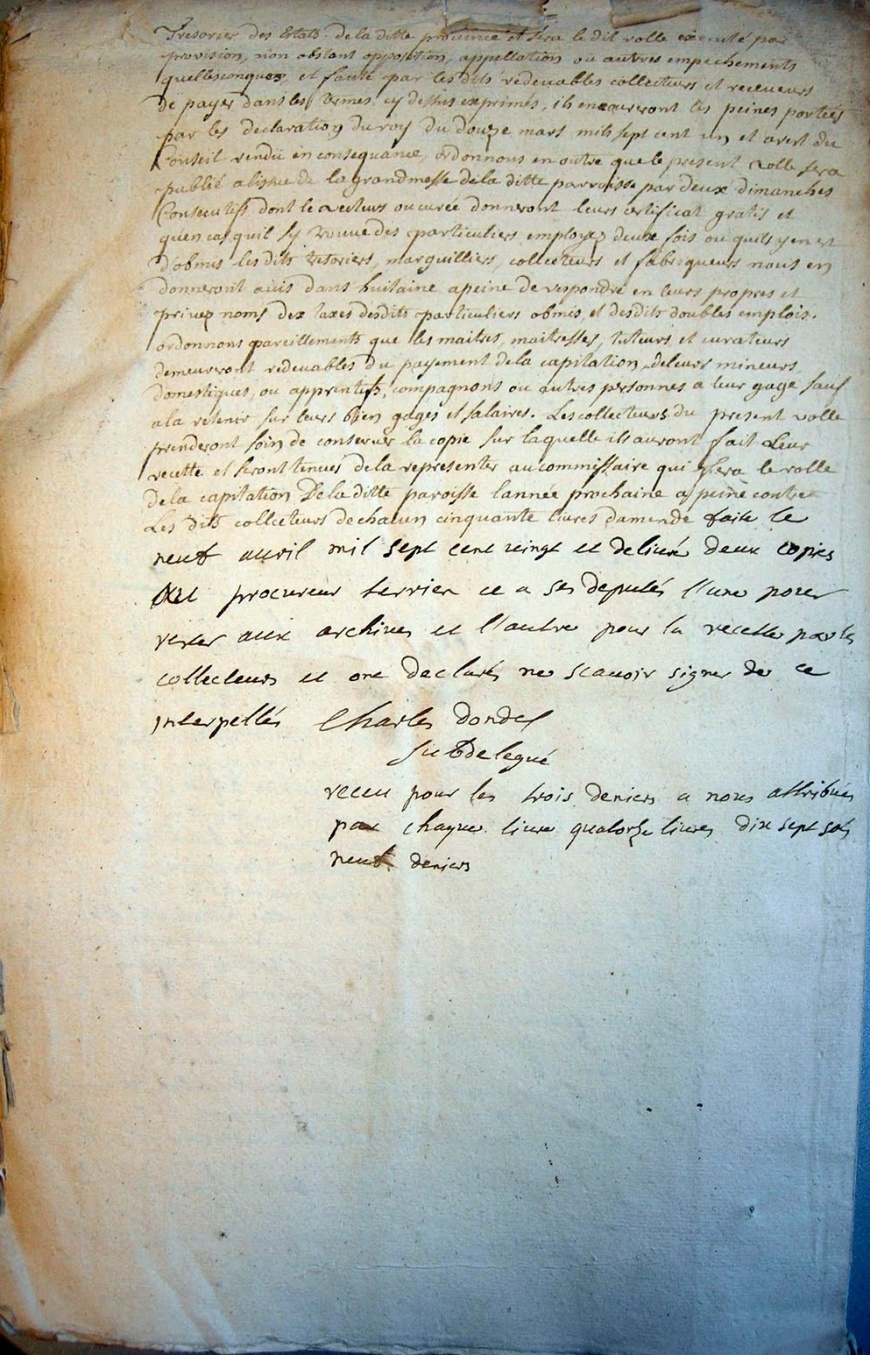 Tresorier des Estats de la ditte province et sera le dit rolle executé par
provision, non obstant opposition, appellation ou autres empechements
quellesconques, et faute par les dits redevables collecteurs et receveurs
de payer dans les termes cy dessus exprimés, ils encoureront les peines portées
par les declaration du roy du douze mars mil sept cent un et arest du
Conseil rendu en consequance, ordonnons en outre que le present rolle sera
publié a lissue de la grandmesse de la ditte parroisse par deux dimanches
Consecutifs dont le recteurs ou curée donneront leurs certificat gratis et
quen cas quil sy trouve des particuliers employez deux fois ou quils y en
d'obmis les dits tresoriers, marguilliers, collecteurs et fabriqueurs nous en
donneront avis dans huitaine a peine de respondre en leurs propres et
privez noms des taxes desdits particuliers obmis, et desdits doubles emplois.
ordonnons pareillements que les maitres, maitresses, tuteurs et curateurs
demeureront redevables du payement de la capitation, de leurs mineurs,
domestiques, ou apprentifs, compagnons ou autres personnes a leur gage sauf
a la retenir sur leurs bien gages et salaires. Les collecteurs du present rolle
prenderont soin de conserver la copie sur laquelle ils auront fait Leur
recette et seront tenues de la representer au commissaire qui fera le rolle
de la capitation De la ditte paroisse lannée prochaine a peine contre
Les dits collecteurs de chacun cinquante livres damende faite le
neuf avril mil sept cent vingt et delivré deux copies
au procureur terrien et a ses deputés l'une pour
rester aux archives et l'autre pour la recette par les
collecteurs et ont declarés ne scavoir signer de ce
interpellés Charles dondel
subdelegué
receu pour les trois deniers a nous attribués
par chaque livre quatorze livres dix sept sols
neuf deniers